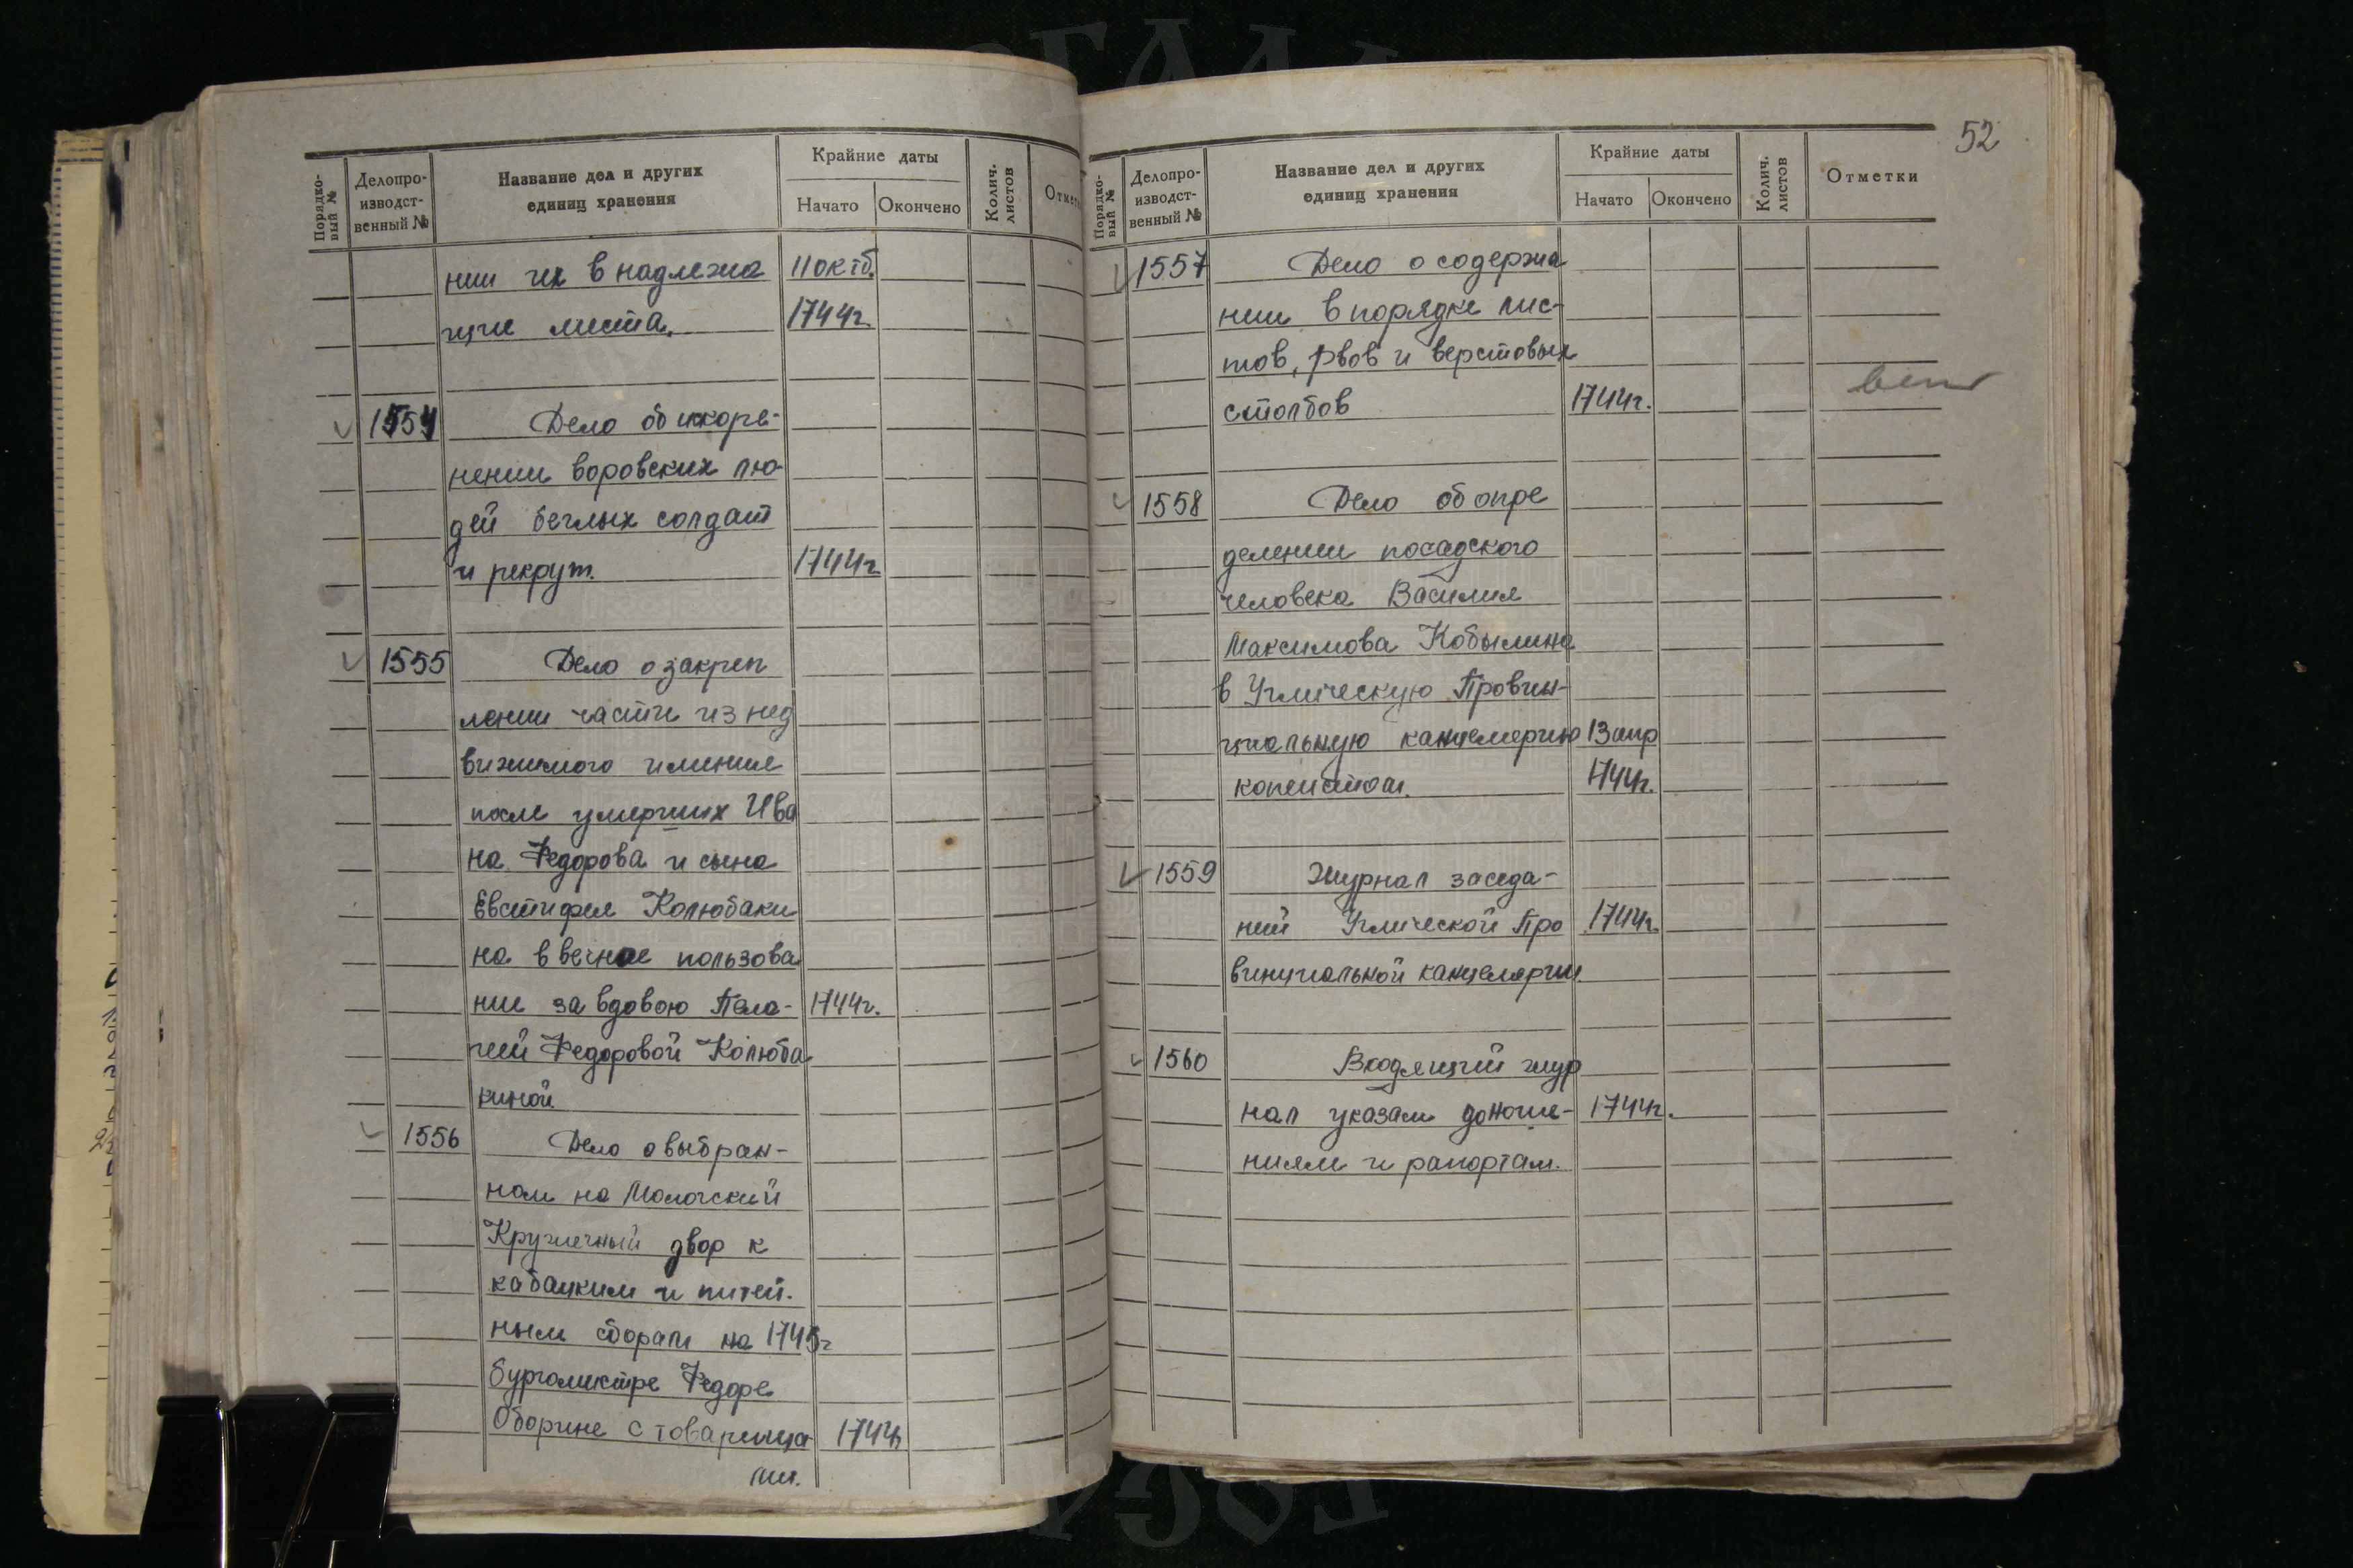 Порядко-
вый №
Делопро-
изводст-
венный №
Название дел и других
единиц хранения
Крайние даты
Начато
Окончено
Колич.
листов
Отмет
нии их в надлежа 11 октб.
щие места. 1744г.
1554 Дело об искоре-
нении воровских лю-
дей беглых солдат
и рекрут. 1744г
1555 Дело о закреп
лении части из нед
вижимого имения
после умерших Ива
на Федорова и сына
Евстифея Колюбаки
на в вечное пользова
ние за вдовою Пела- 1744г.
геей Федоровой Колюба
киной
1556 Дело о выбран-
ном на Мологский
Кружечный двор к
кабацким и питей-
ным сборам на 1745г
бургомистре Федоре
Оборине с товарища 1744г
ми.
52
Порядко-
вый №
Делопро-
изводст-
венный №
Название дел и других
единиц хранения
Крайние даты
Начато
Окончено
Колич.
листов
Отметки
1557 Дело о содержа
нии в порядке мос-
тов, рвов и верстовых
столбов 1744г.
1558 Дело об опре
делении посадского
человека Василия
Максимова Кобылина
в Угличскую Провин-
циальную канцелярию 13 апр
копеистом. 1744г.
1559 Журнал заседа-
ний Угличской Про 1744г.
винциальной канцелярии.
1560 Входящий жур
нал указам доноше- 1744г.
ниям и рапортам.